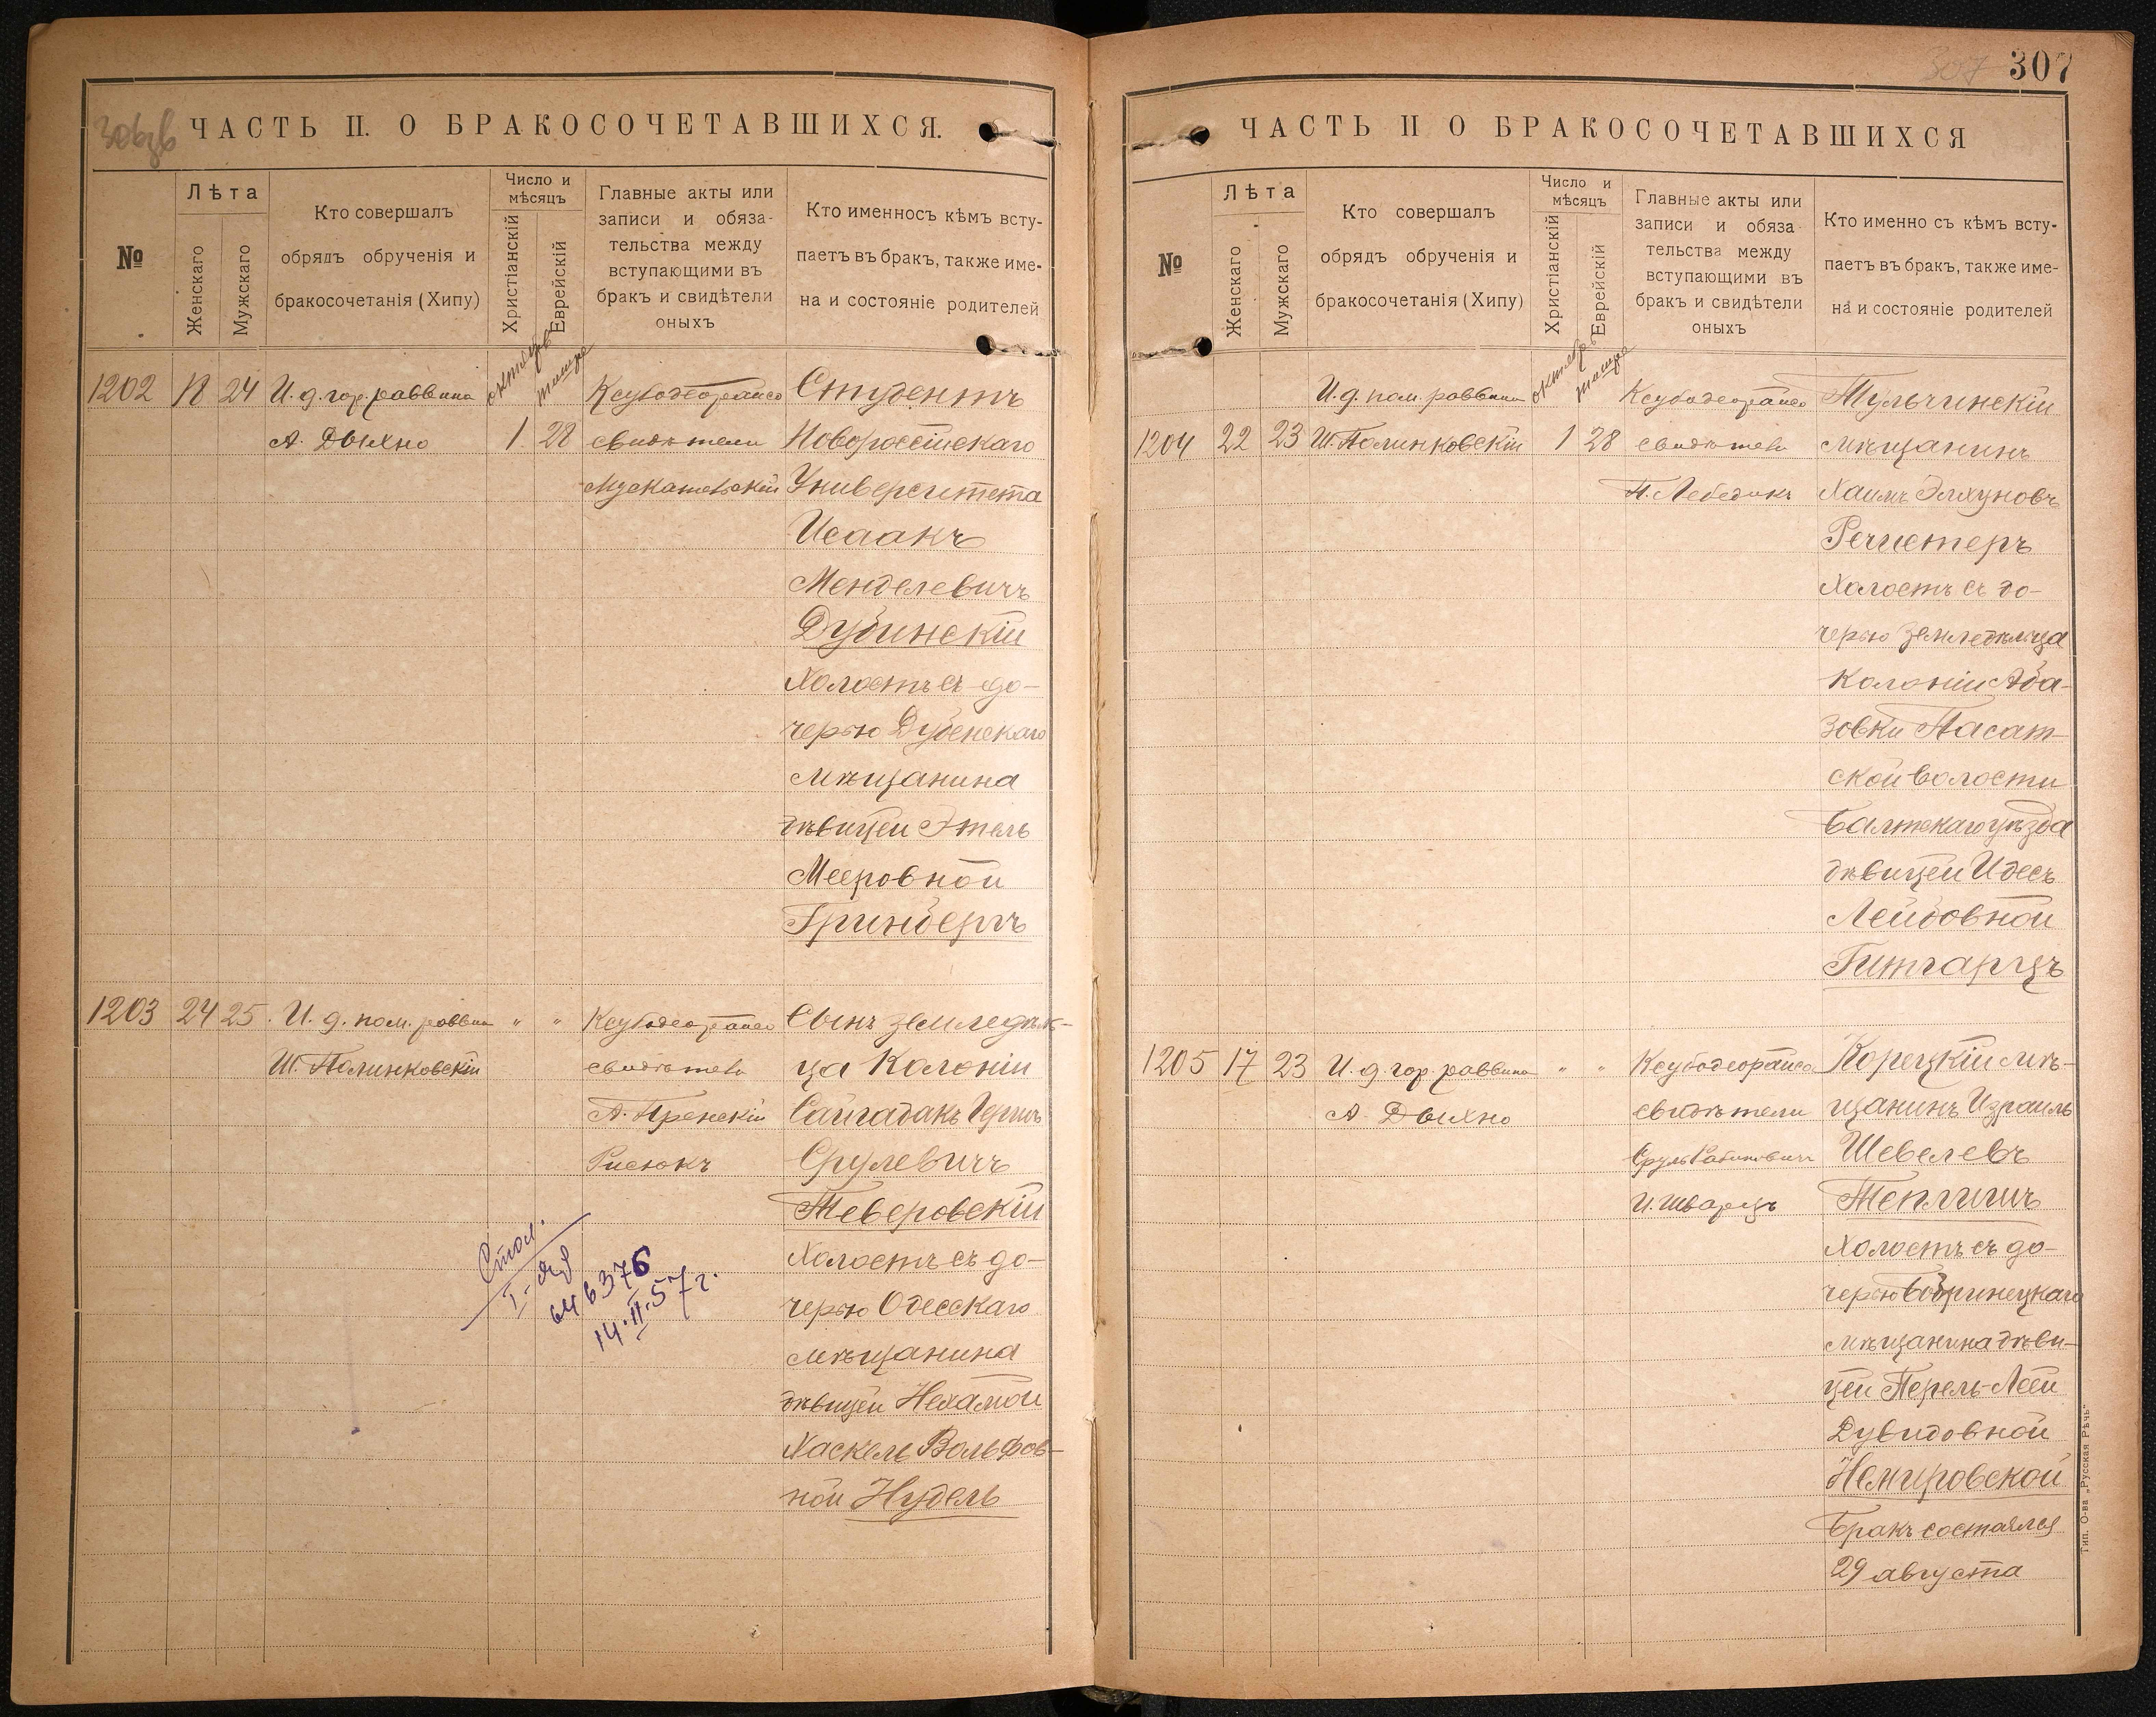 306зв
ЧАСТЬ II. О БРАКОСОЧЕТАВШИХСЯ.
№
Лѣта
Женскаго
Мужскаго
Кто совершалъ
обрядъ обрученія и
бракосочетанія (Хипу)
Число и
мѣсяцъ
Христіанскій
Еврейскій
Главные акты или
записи и обяза-
тельства между
вступающими въ
бракъ и свидѣтели
оныхъ
Кто именносъ кѣмъ всту-
паетъ въ бракъ, также име-
на и состояніе родителей
октябрь
тишре
1202
18
24
И. д. гор. раввина
А. Дыхно
1
28
свидѣтели
Студентъ
Новороссійскаго
Университета
Исаакъ
Менделевичъ
Дубинскій
Холостъ съ до-
черью Дубенскаго
мѣщанина
дѣвицей Этель
Мееровной
Гринбергъ
1203
24
25
И. д. пом. раввин
Ш. Полинковскій
"
"
свидѣтели
Сынъ земледѣль-
ца Колоніи
Сайгадакъ Гершъ
Срулевичъ
Тверовскій
Холостъ съ до-
черью Одесскаго
мѣщанина
дѣвицей Нехамой
Хаскель Вольфов-
ной Нудель
646376
14.II.57г.
307
307
ЧАСТЬ II О БРАКОСОЧЕТАВШИХСЯ
№
Лѣта
Женскаго
Мужскаго
Кто совершалъ
обрядъ обрученія и
бракосочетанія (Хипу)
Число и
мѣсяцъ
Христіанскій
Еврейскій
Главные акты или
записи и обяза-
тельства между
вступающими въ
бракъ и свидѣтели
оныхъ
Кто именно съ кѣмъ всту-
паетъ въ бракъ, также име-
на и состояніе родителей
октябрь
тишре
1204
22
23
И. д. пом. раввина
Ш. Полинковскій
1
28
свидѣтели
Н. Лебедикъ
Тульчинскій
мѣщанинъ
Хаимъ Элхуновъ
Речистеръ
Холостъ съ до-
черью земледѣльца
Колоніи Аба-
зовки Пасат-
ской волости
Балтскаго уѣзда
дѣвицей Идесъ
Лейбовной
Гитгарцъ
1205
17
23
И. д. гор. раввина
А. Дыхно
"
"
свидѣтели
Сруль Рабиновичъ
И. Шварцъ
Корецкій мѣ-
щанинъ Израиль
Шевелевъ
Теплицкъ
Холостъ съ до-
черью Бобринецкаго
мѣщанина дѣви-
цей Перель-Леей
Дувидовной
Немировской
Бракъ состоялся
29 августа
Тип. О-ва „Русская Рѣчь“